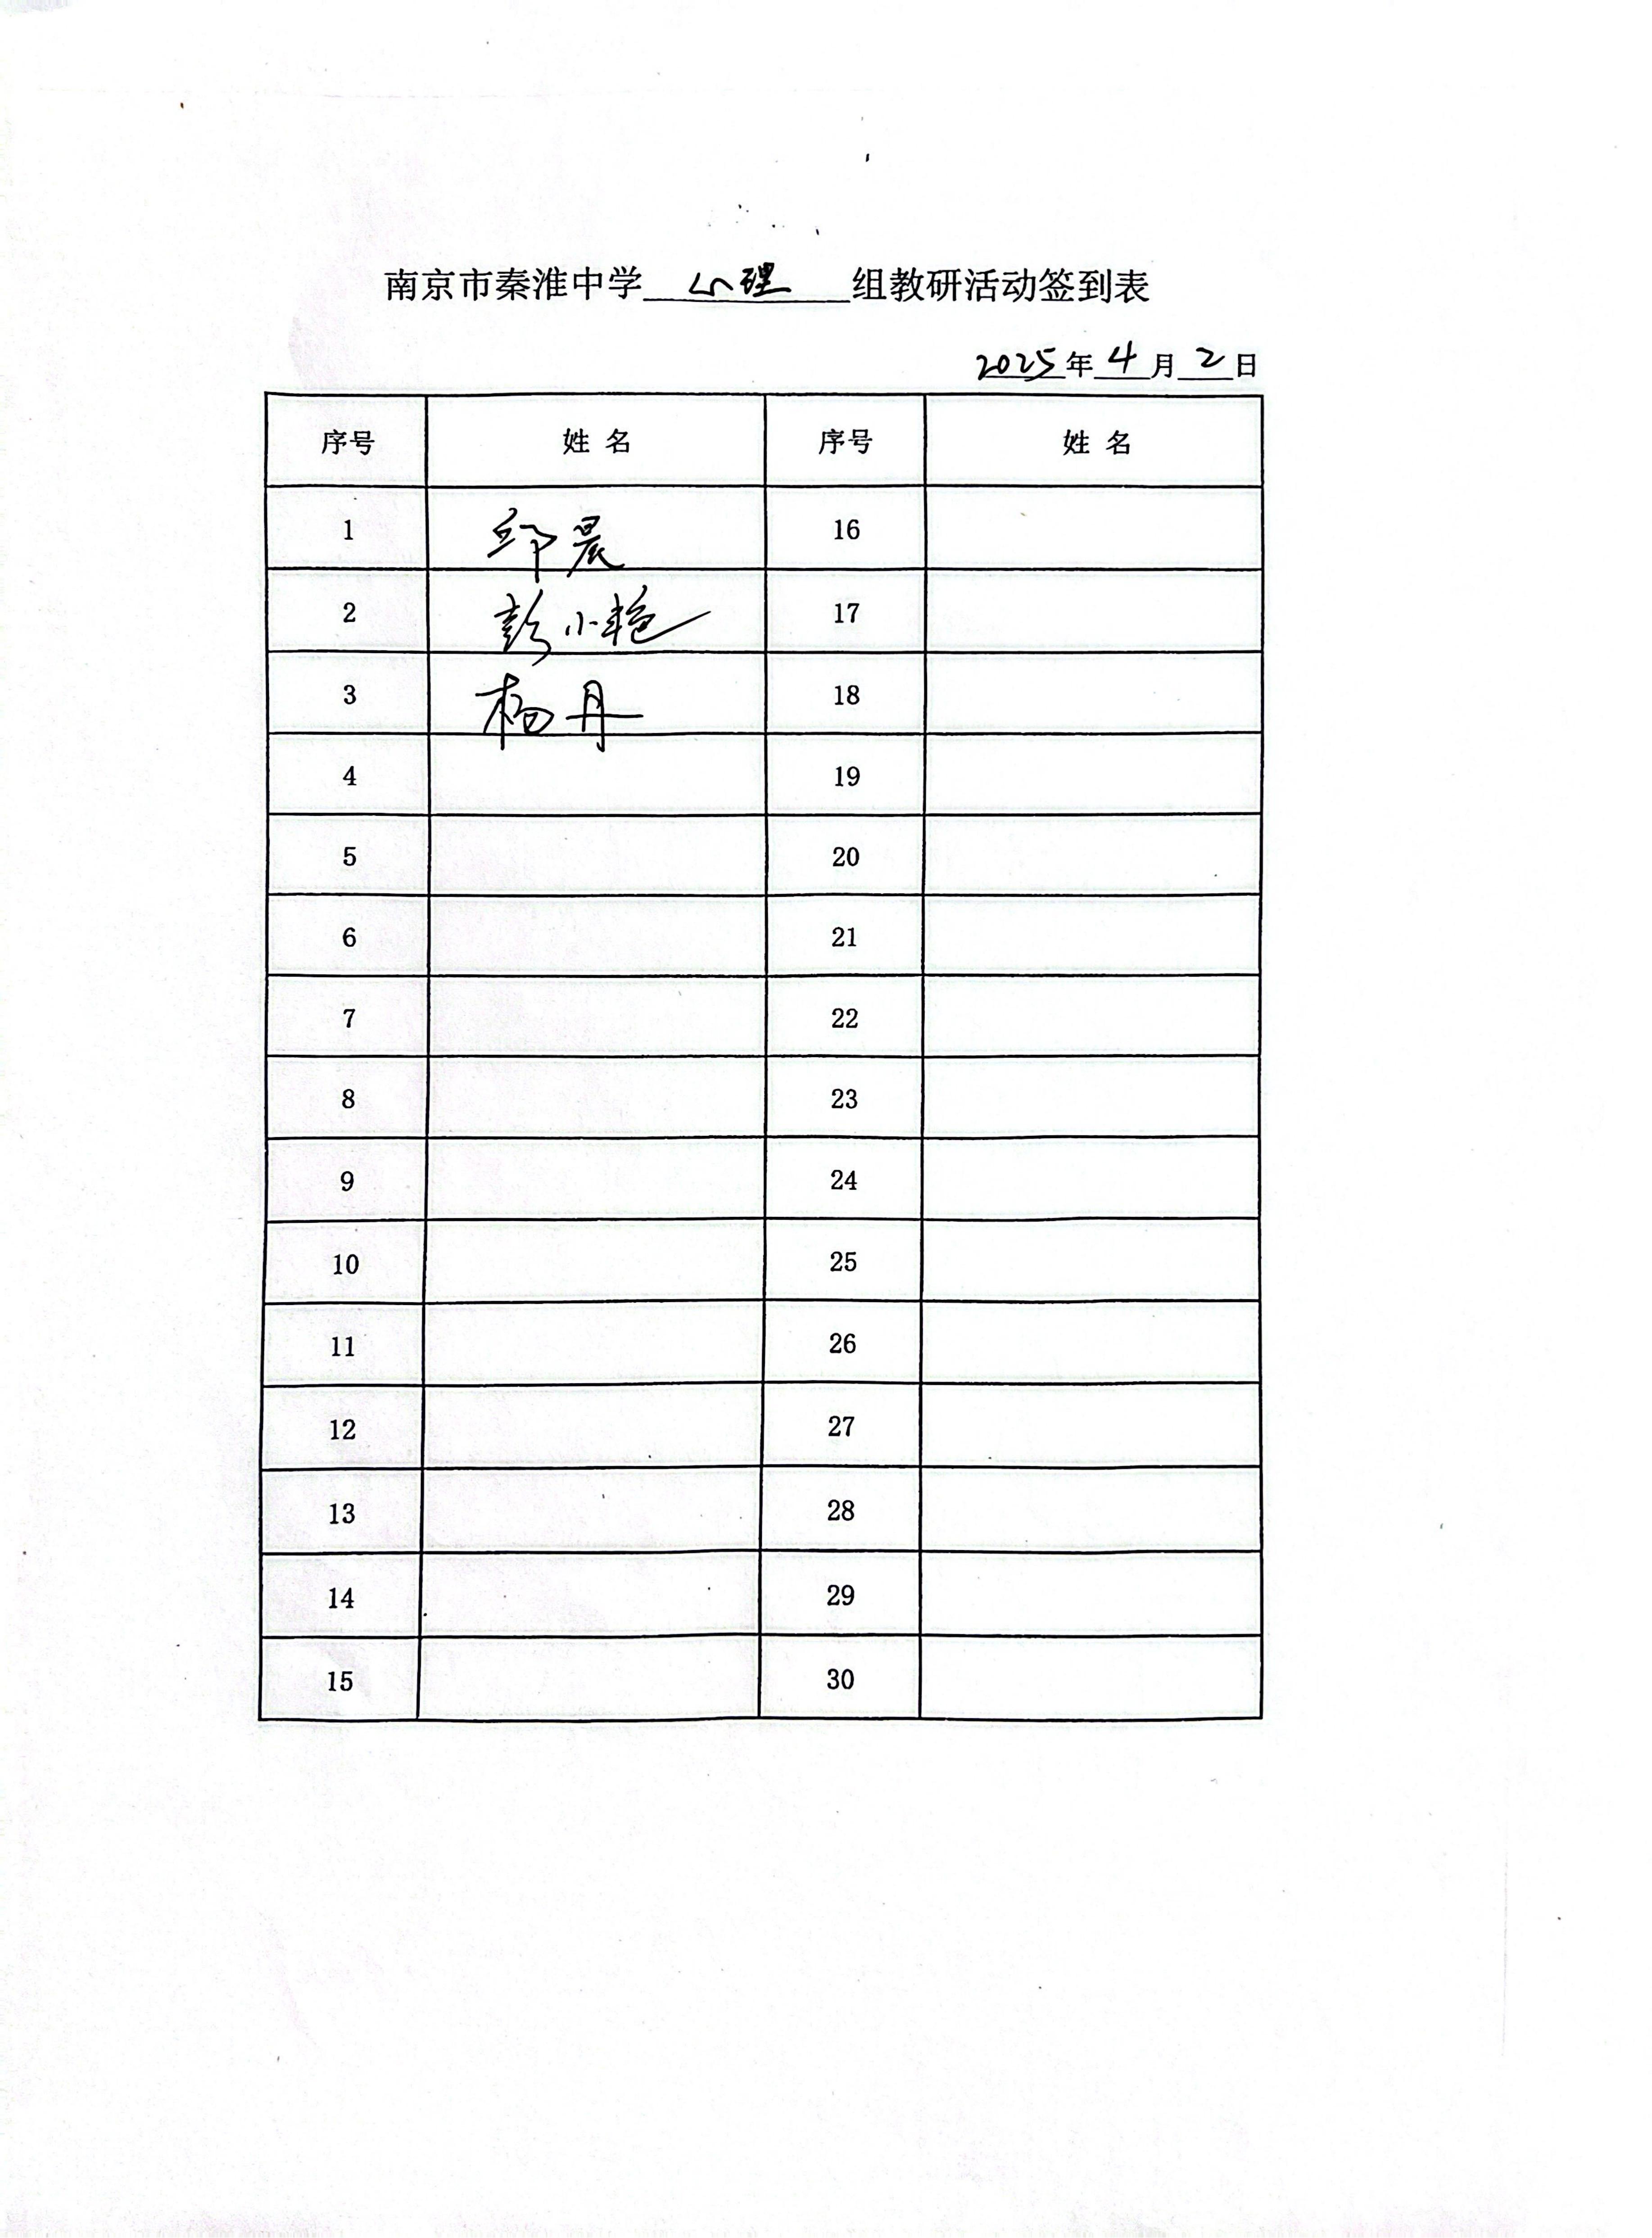 南京市秦淮中学 心理 组教研活动签到表
2025年 4 月 2 日
序号 姓名 序号 姓名
1 邱晨 16
2 彭小艳 17
3 杨丹 18
4 19
5 20
6 21
7 22
8 23
9 24
10 25
11 26
12 27
13 28
14 29
15 30